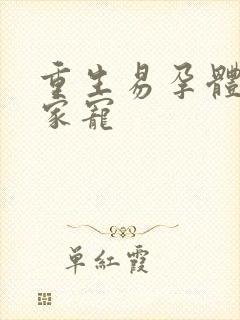 重生易孕體
家寵
單紅霞